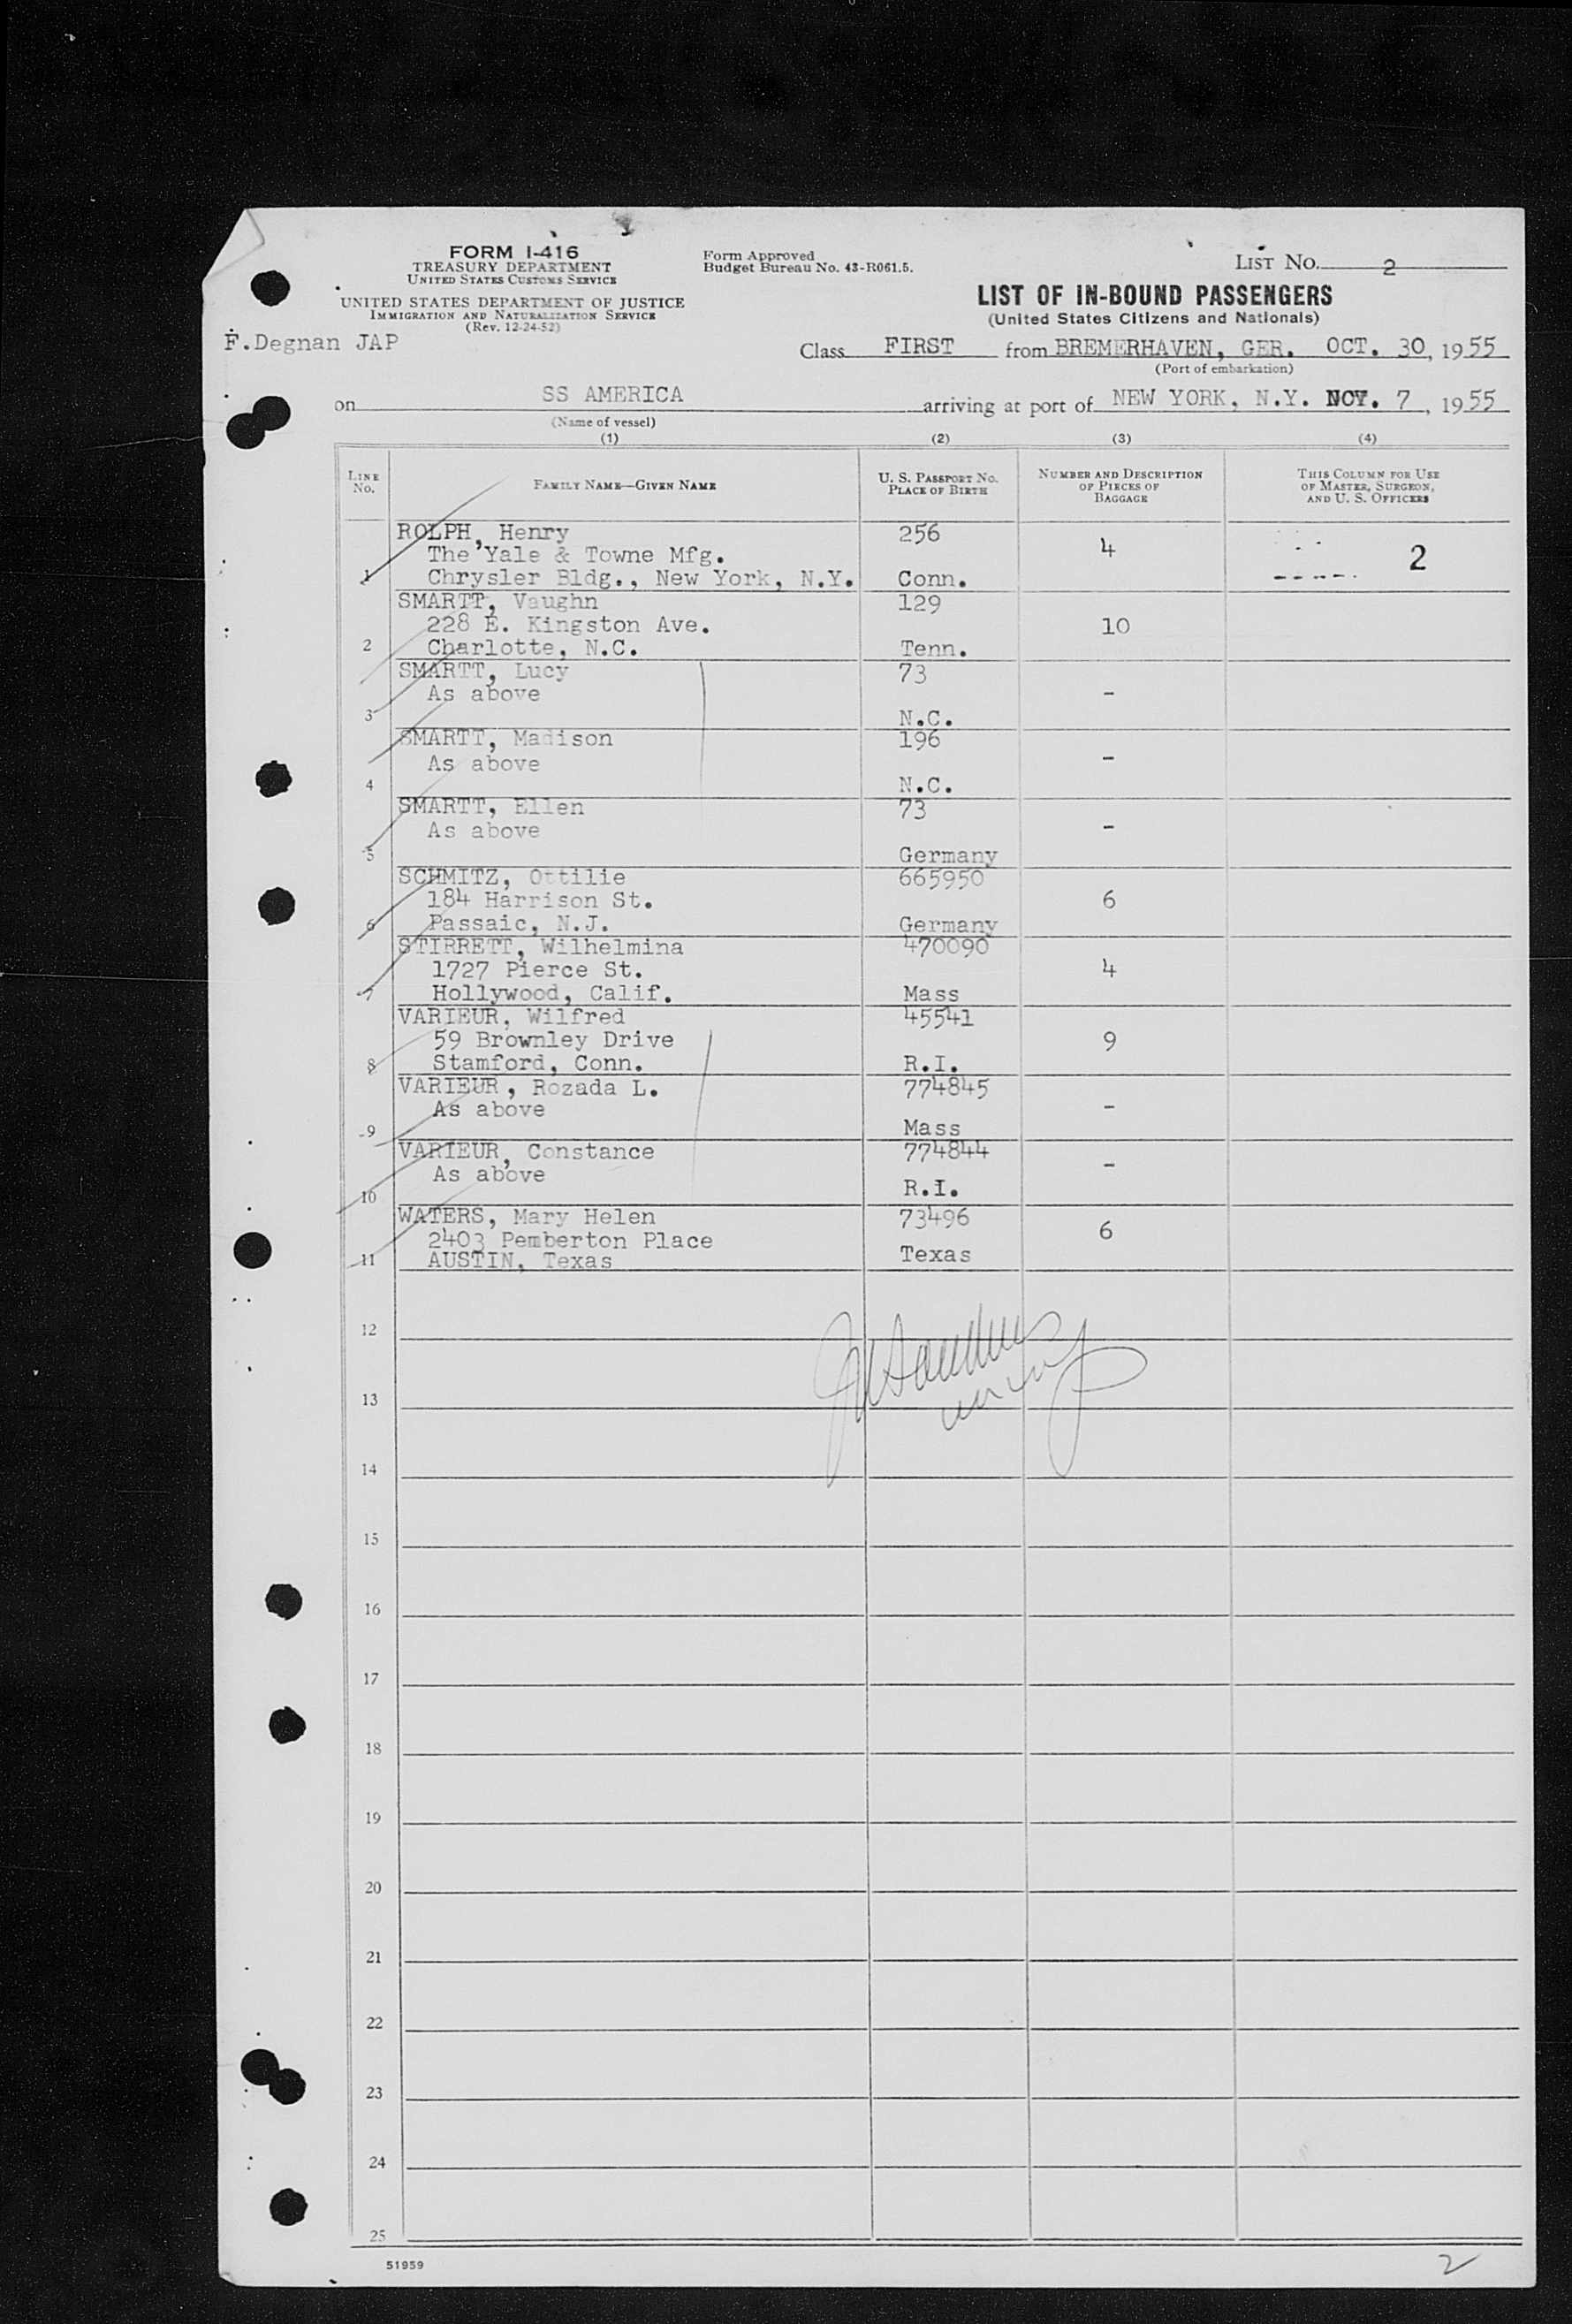 FORM I-416
TREASURY DEPARTMENT
UNITED STATES CUSTOMS SERVICE
UNITED STATES DEPARTMENT OF JUSTICE
IMMIGRATION AND NATURALIZATION SERVICE
(Rev. 12-24-52)
Form Approved
Budget Bureau No. 43-R061.5.
LIST NO. 2
LIST OF IN-BOUND PASSENGERS
(United States Citizens and Nationals)
F.Degnan JAP
Class FIRST from BREMERHAVEN, GER. OCT. 30, 1955
(Port of embarkation)
on SS AMERICA arriving at port of NEW YORK, N.Y. NOV. 7, 1955
(Name of vessel)
(1) (2) (3) (4)
LINE No. FAMILY NAME—GIVEN NAME U. S. PASSPORT NO. PLACE OF BIRTH NUMBER AND DESCRIPTION OF PIECES OF BAGGAGE THIS COLUMN FOR USE OF MASTER, SURGEON, AND U. S. OFFICERS
ROLPH, Henry 256
The Yale & Towne Mfg. 4 2
1 Chrysler Bldg., New York, N.Y. Conn.
SMARTT, Vaughn 129
228 E. Kingston Ave. 10
2 Charlotte, N.C. Tenn.
SMARTT, Lucy 73
As above -
3 N.C.
SMARTT, Madison 196
As above -
4 N.C.
SMARTT, Ellen 73
As above -
5 Germany
SCHMITZ, Ottilie 665950
184 Harrison St. 6
6 Passaic, N.J. Germany
STIRRETT, Wilhelmina 470090
1727 Pierce St. 4
7 Hollywood, Calif. Mass
VARIEUR, Wilfred 45541
59 Brownley Drive 9
8 Stamford, Conn. R.I.
VARIEUR, Rozada L. 774845
As above -
9 Mass
VARIEUR, Constance 774844
As above -
10 R.I.
WATERS, Mary Helen 73496
2403 Pemberton Place 6
11 AUSTIN, Texas Texas
12
13
14
15
16
17
18
19
20
21
22
23
24
25
51959
2